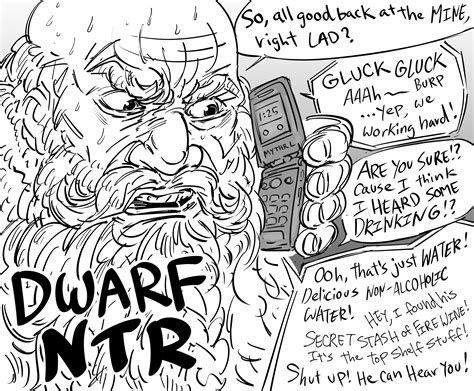 So, all good back at the MINE,
right LAD?
GLUCK GLUCK
AAAh~ BURP
...Yep, we
working hard!
1:25
MYTHRL
ARE YOU SURE!?
Cause I think
I HEARD SOME
DRINKING!?
Ooh, that's just WATER!
Delicious NON-ALCOHOLIC
WATER!
HEY, I found his
SECRET STASH OF FIRE WINE!
It's the top shelf stuff!
Shut up! He can Hear You!
DWARF
NTR